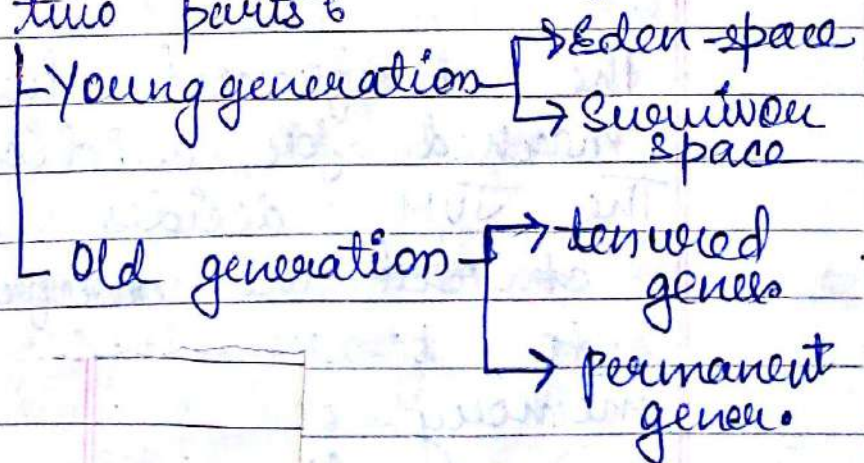 two parts :
Young generation → Eden-space
→ Survivor space
Old generation → tenured gener.
→ permanent gener.